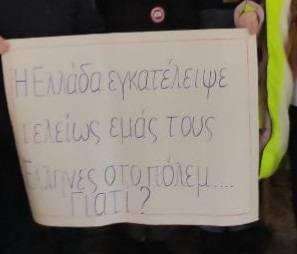 Η Ελλάδα εγκατέλειψε
τελείως εμάς τους
Έλληνες στο πόλεμ....
ΓΙΑΤΙ?